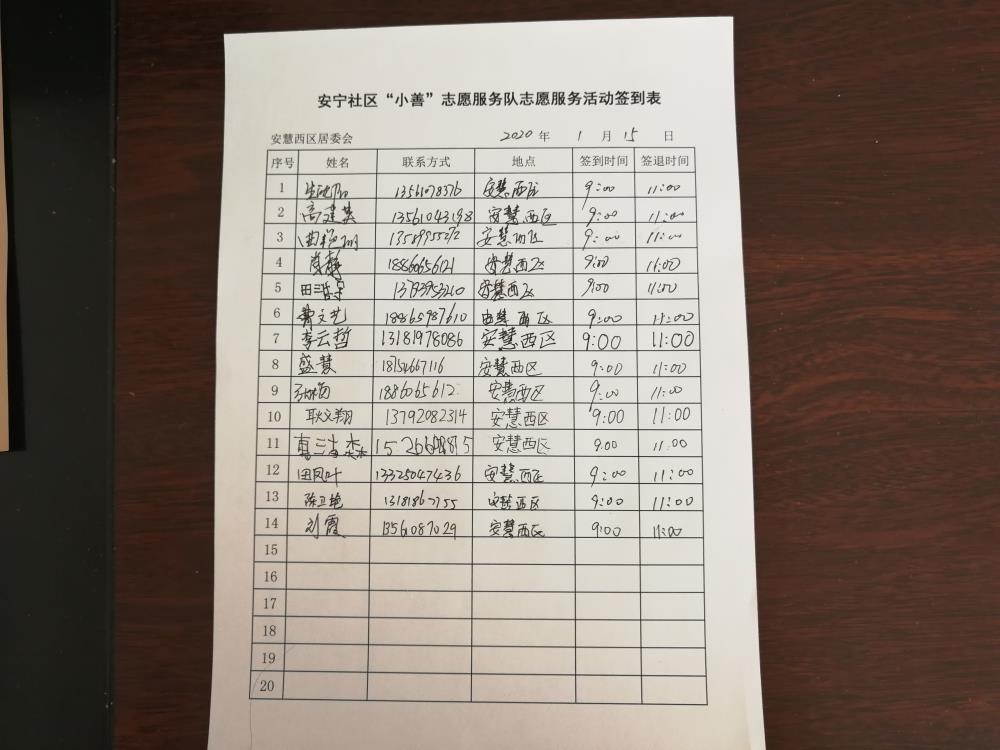 安宁社区“小善”志愿服务队志愿服务活动签到表
安慧西区居委会 2020 年 1 月 15 日
序号 姓名 联系方式 地点 签到时间 签退时间
1 安慧西区 9:00 11:00
2 高建英 13561043198 安慧西区 9:00 11:00
3 安慧西区 9:00 11:00
4 18860656121 安慧西区 9:00 11:00
5 13793953210 安慧西区 9:00 11:00
6 文艺 18865987610 西区 9:00 11:00
7 李云哲 13181978086 安慧西区 9:00 11:00
8 盛慧 安慧西区 9:00 11:00
9 1886065612 安慧西区 9:00 11:00
10 耿文翔 13792082314 安慧西区 9:00 11:00
11 安慧西区 9:00 11:00
12 田凤叶 13325047436 安慧西区 9:00 11:00
13 陈卫艳 安慧西区 9:00 11:00
14 刘霞 13561087029 安慧西区 9:00 11:00
15
16
17
18
19
20